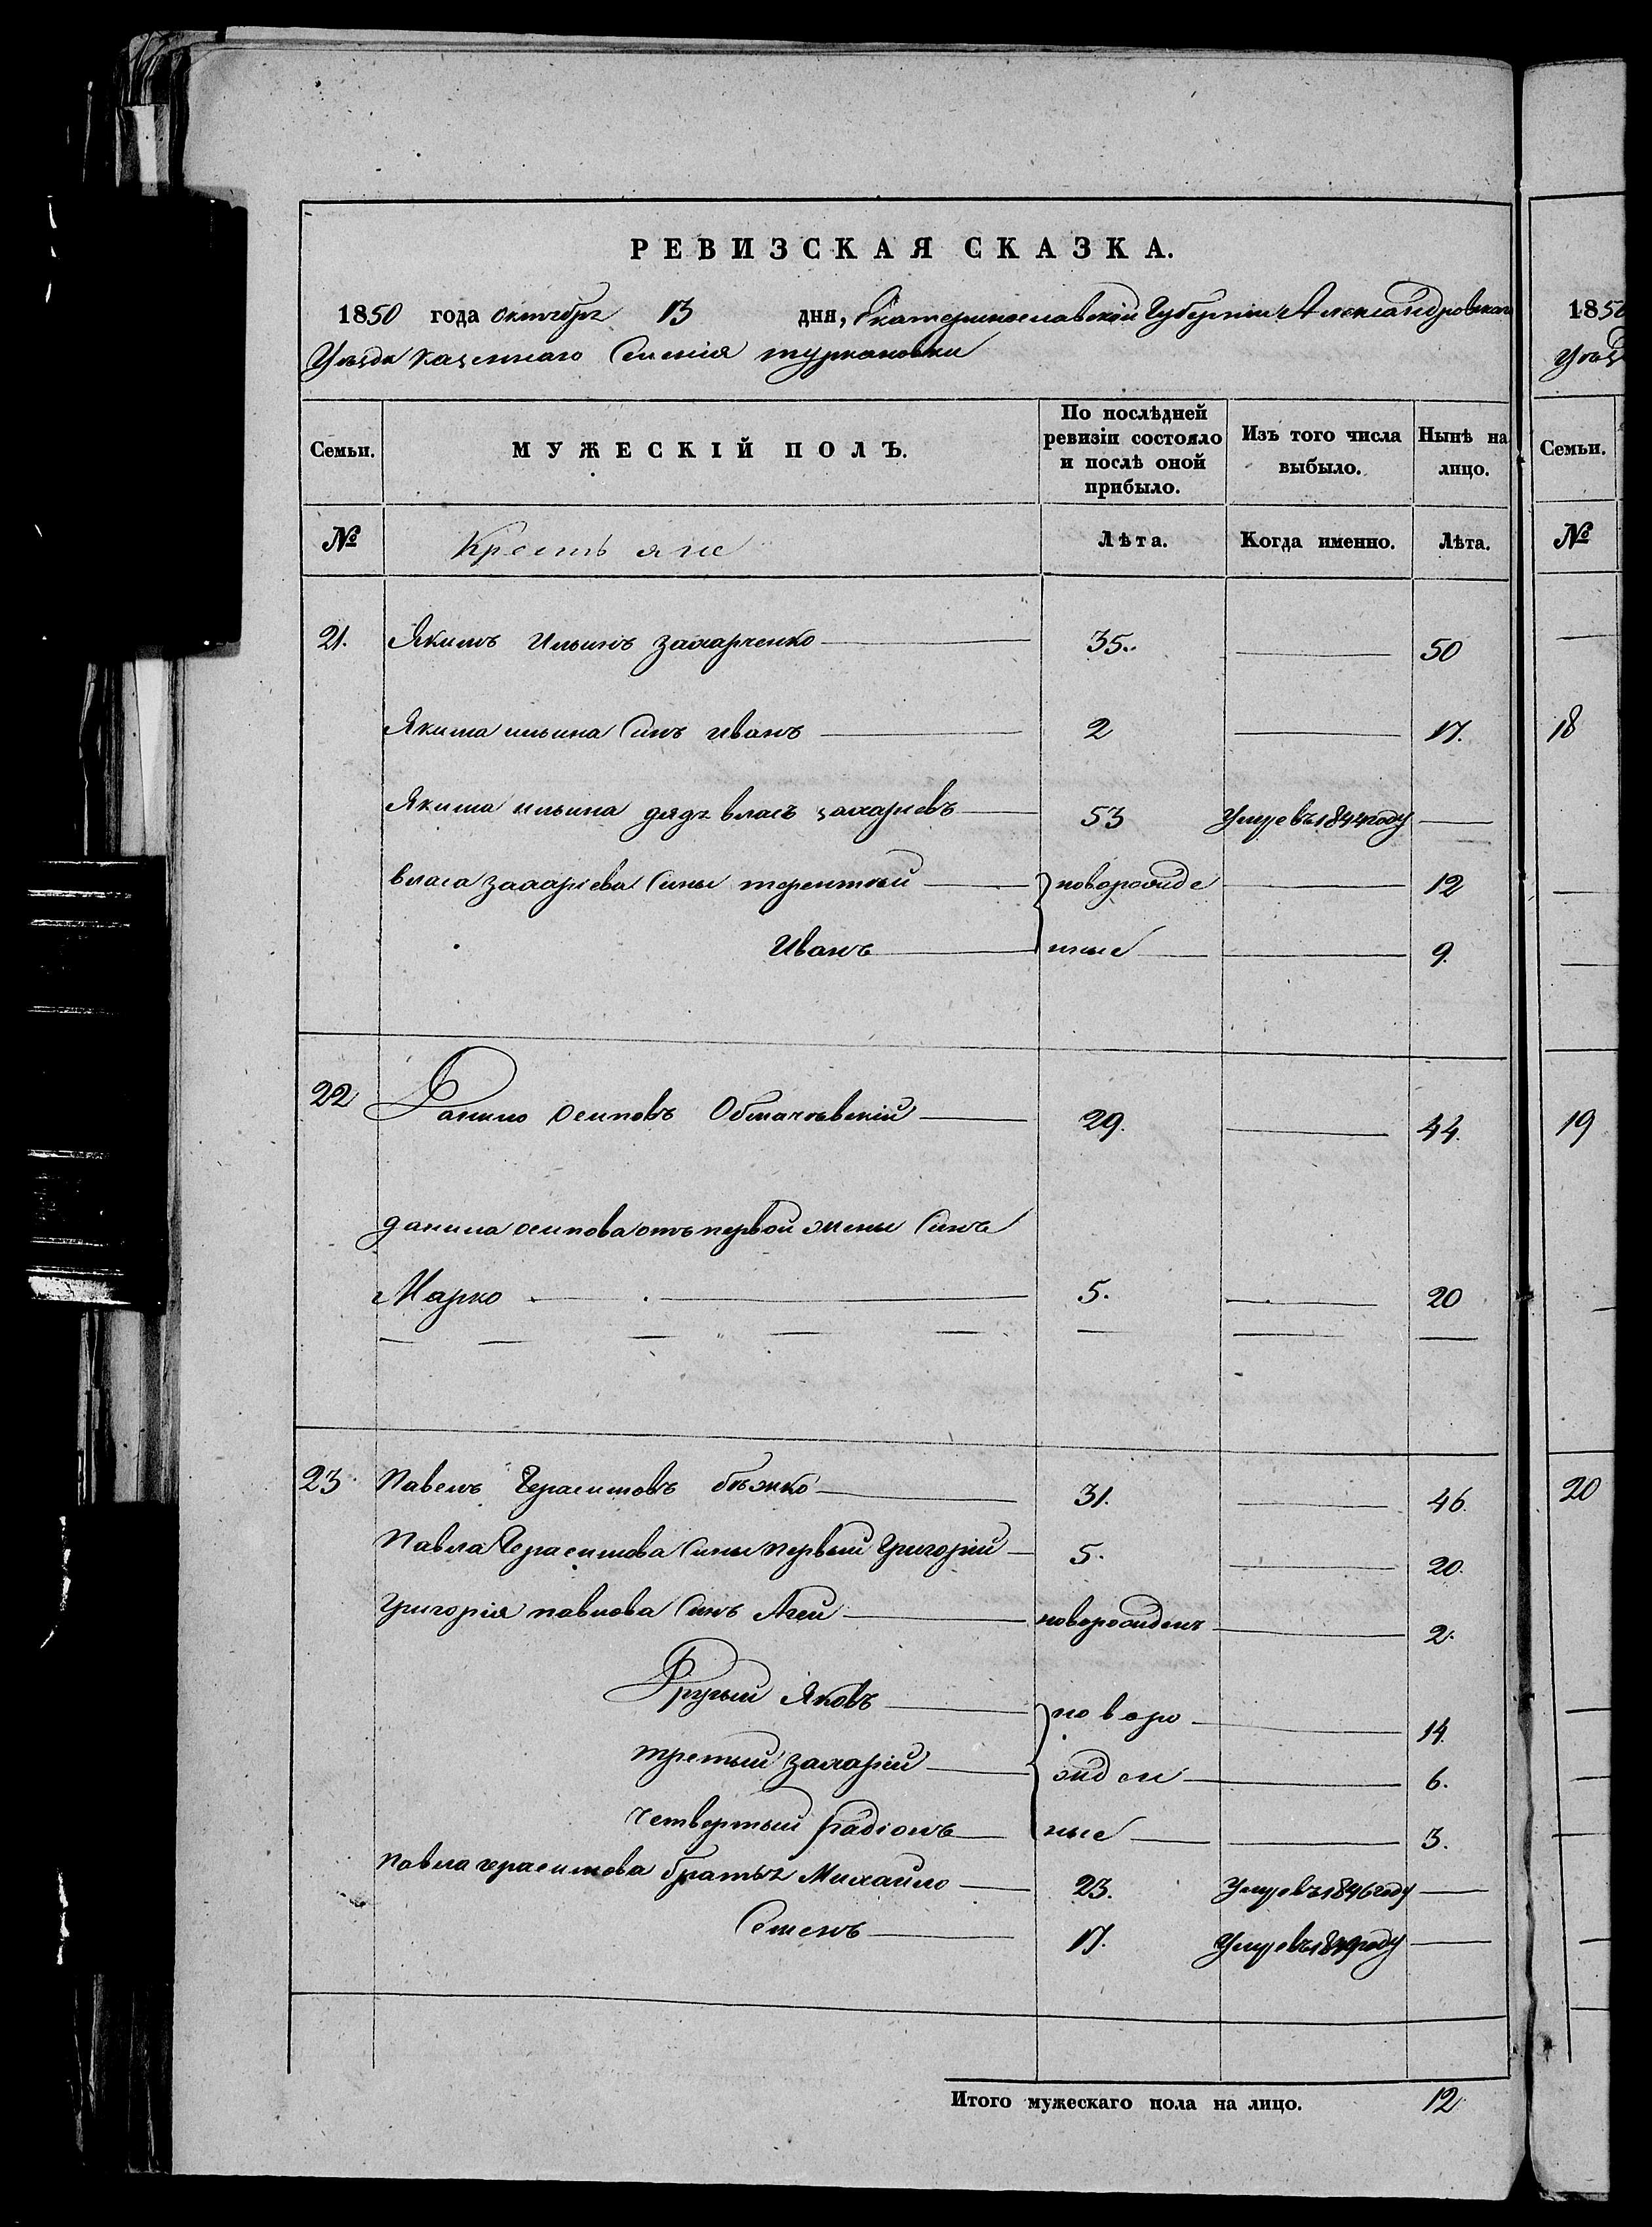 РЕВИЗСКАЯ СКАЗКА.
1850 года октября 13 дня, Екатеринославской Губерніи Александровскаго
Уезда Казеннаго Селенія туркановки
Семьи. МУЖЕСКІЙ ПОЛЪ. По послѣдней ревизіи состояло и послѣ оной прибыло. Изъ того числа выбыло. Нынѣ на лицо.
№ Крестьяне Лѣта. Когда именно. Лѣта.
21. Якимъ Ильинъ захарченко 35. 50
Якима ильина Синъ иванъ 2 17.
Якима ильина дядя власъ захаріевъ 53 Умре въ 1844 году
власа захаріева Сины терентий новорожде 12
Иванъ нные 9.
22 Данило осиповъ 29. 44.
данила осипова отъ первой жены Синъ
Марко 5. 20
23 Павелъ Герасимовъ бѣжко 31. 46.
Павла Герасимова Сины первый Григорій 5. 20.
Григорія павлова Синъ Агей новорожденъ 2.
Другий Яковъ новоро 14.
третый захарій жден 6.
четвертый радіонъ ные 3.
павла герасимова братья Михайло 23. Умре въ 1846 году
Семенъ 17. Умре въ 1849 году
Итого мужескаго пола на лицо. 12
1850
Уезд
Семьи.
№
18
19
20